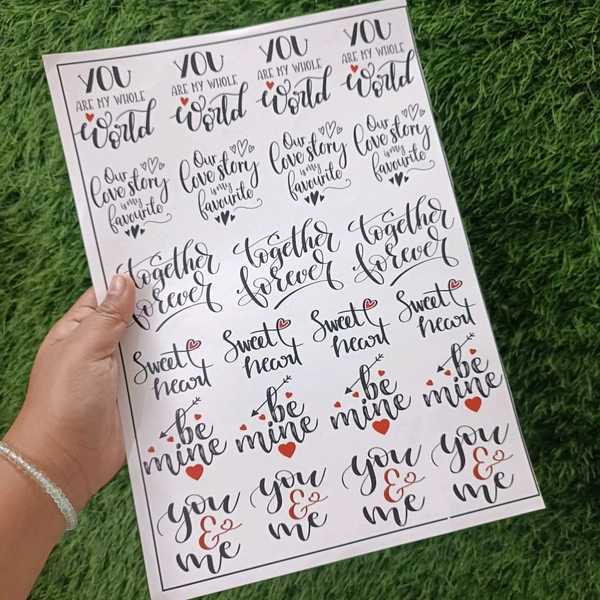 YOU YOU YOU YOU
ARE MY WHOLE ARE MY WHOLE ARE MY WHOLE ARE MY WHOLE
World World World World
Our Our Our Our
love story love story love story love story
is my is my is my is my
favourite favourite favourite favourite
together together together
forever forever forever
Sweet Sweet Sweet Sweet
heart heart heart heart
be be be be
mine mine mine mine
you you you you
& & & &
me me me me